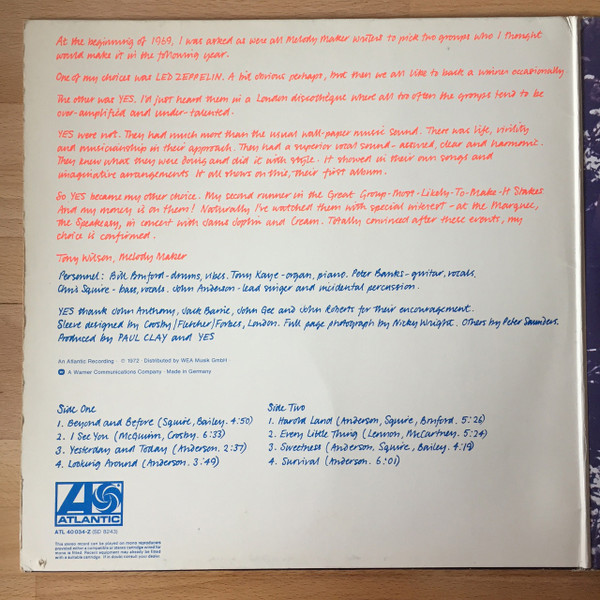 At the beginning of 1969, I was asked as were all Melody Maker writers to pick two groups who I thought
would make it in the following year.
One of my choices was LED ZEPPELIN. A bit obvious perhaps, but then we all like to back a winner occasionally.
The other was YES. I'd just heard them in a London discothèque where all too often the groups tend to be
over-amplified and under-talented.
YES were not. They had much more than the usual wall-paper music sound. There was life, virility
and musicianship in their approach. They had a superior vocal sound - assured, clear and harmonic.
They knew what they were doing and did it with style. It showed in their own songs and
imaginative arrangements. It all shows on this, their first album.
So YES became my other choice. My second runner in the Great Group-Most-Likely-To-Make-It Stakes
And my money is on them! Naturally I've watched them with special interest - at the Marquee,
The Speakeasy, in concert with Janis Joplin and Cream. Totally convinced after these events, my
choice is confirmed.
Tony Wilson, Melody Maker
Personnel: Bill Bruford - drums, vibes. Tony Kaye - organ, piano. Peter Banks - guitar, vocals.
Chris Squire - bass, vocals. John Anderson - lead singer and incidental percussion.
YES thank John Anthony, Jack Barrie, John Gee and John Roberts for their encouragement.
Sleeve designed by Crosby/Fletcher/Forbes, London. Full page photograph by Nicky Wright. Others by Peter Saunders.
Produced by PAUL CLAY and YES
An Atlantic Recording · ℗ 1972 · Distributed by WEA Musik GmbH
A Warner Communications Company · Made in Germany
Side One
1. Beyond and Before (Squire, Bailey. 4:50)
2. I See You (McGuinn, Crosby. 6:33)
3. Yesterday and Today (Anderson. 2:37)
4. Looking Around (Anderson. 3:49)
Side Two
1. Harold Land (Anderson, Squire, Bruford. 5:26)
2. Every Little Thing (Lennon, McCartney. 5:24)
3. Sweetness (Anderson, Squire, Bailey. 4:19)
4. Survival (Anderson. 6:01)
ATLANTIC
ATL 40 034-Z (SD 8243)
This stereo record can be played on mono reproducers
provided either a compatible or stereo cartridge wired for
mono is fitted. Recent equipment may already be fitted
with a suitable cartridge. If in doubt consult your dealer.